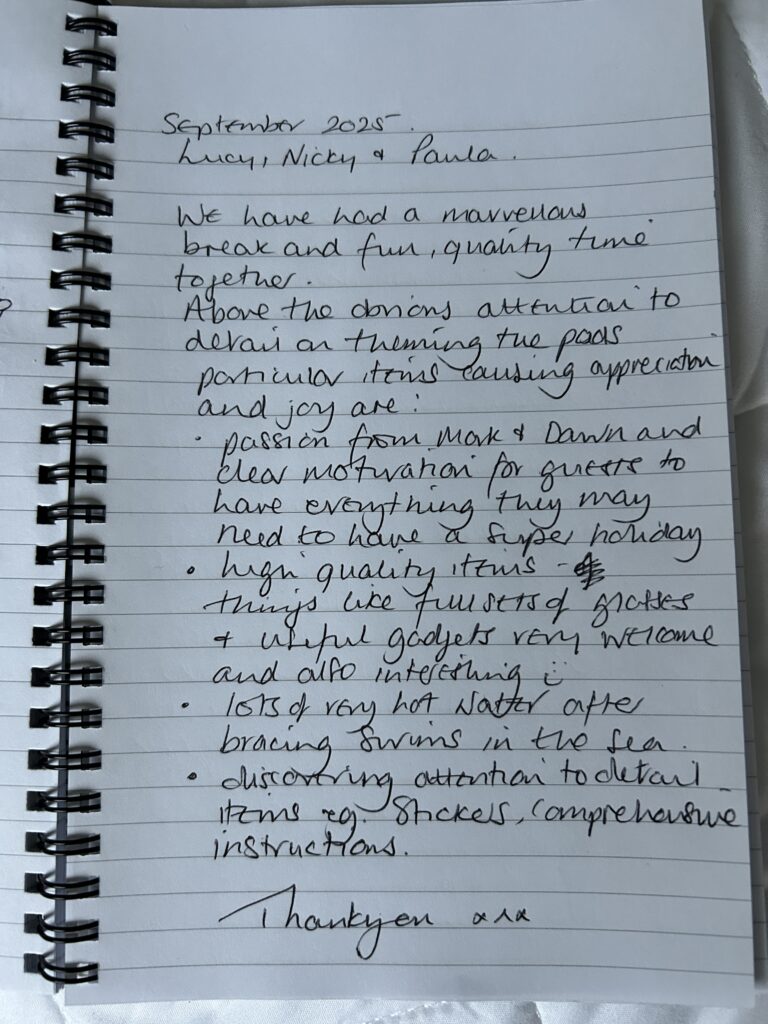 September 2025.
Lucy, Nicky & Paula.
We have had a marvellous
break and fun, quality time
together.
Above the obvious attention to
detail on theming the pods
particular items causing appreciation
and joy are:
• passion from Mark & Dawn and
clear motivation for guests to
have everything they may
need to have a super holiday
• high quality items -
things like full sets of glasses
& useful gadgets very welcome
and also interesting :)
• lots of very hot water after
bracing swims in the sea.
• discovering attention to detail
items eg. stickers, comprehensive
instructions.
Thankyou xxx